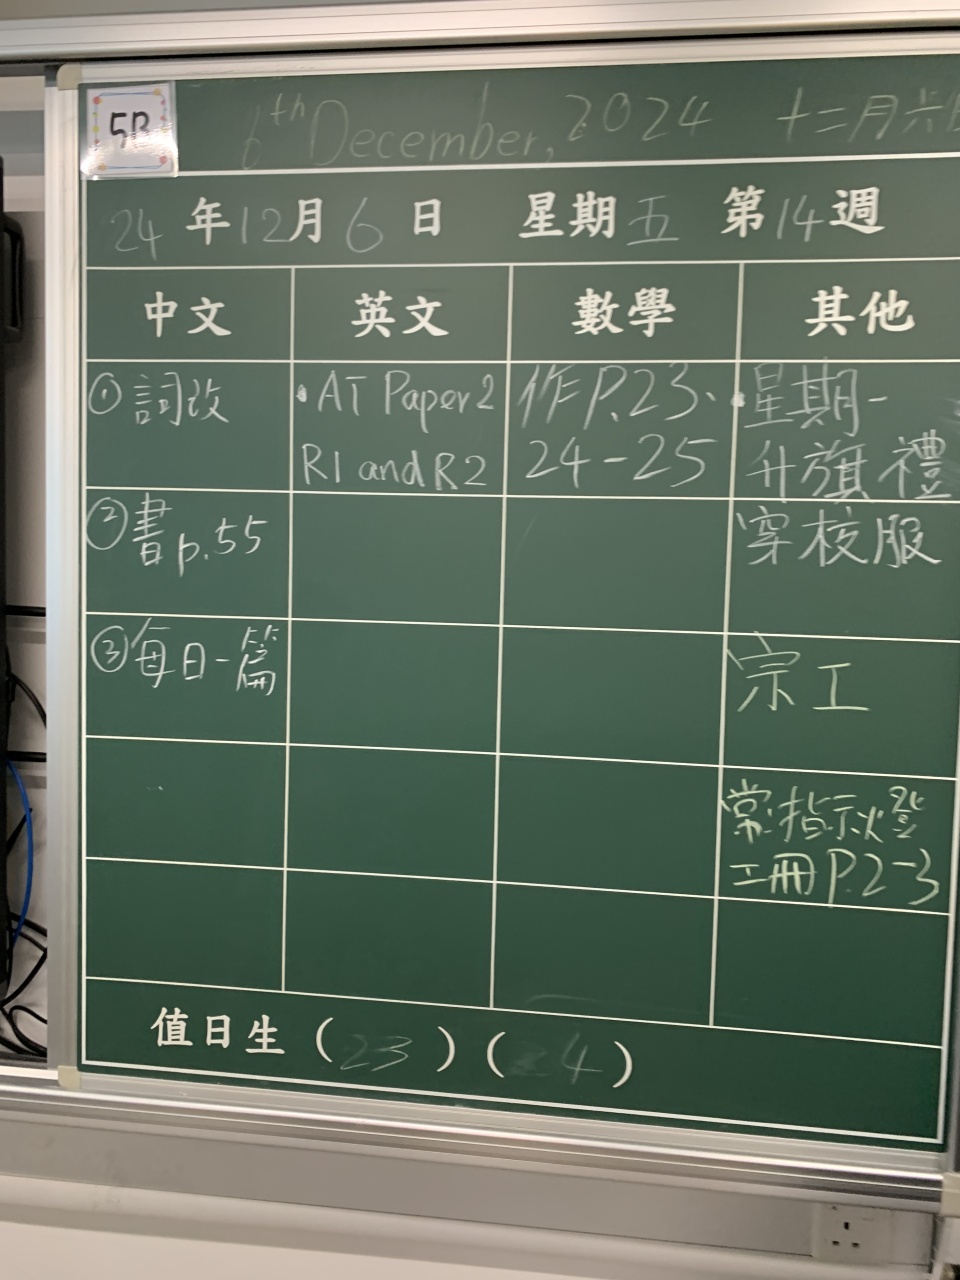 5B
6th December, 2024 十二月六日
24年12月6日 星期五 第14週
中文 英文 數學 其他
①詞改
②書p.55
③每日一篇
·AT Paper 2
R1 and R2
作P.23、
24-25
·星期一
升旗禮
穿校服
宗工
常:指示火燈
工冊P.2-3
值日生(23)(24)